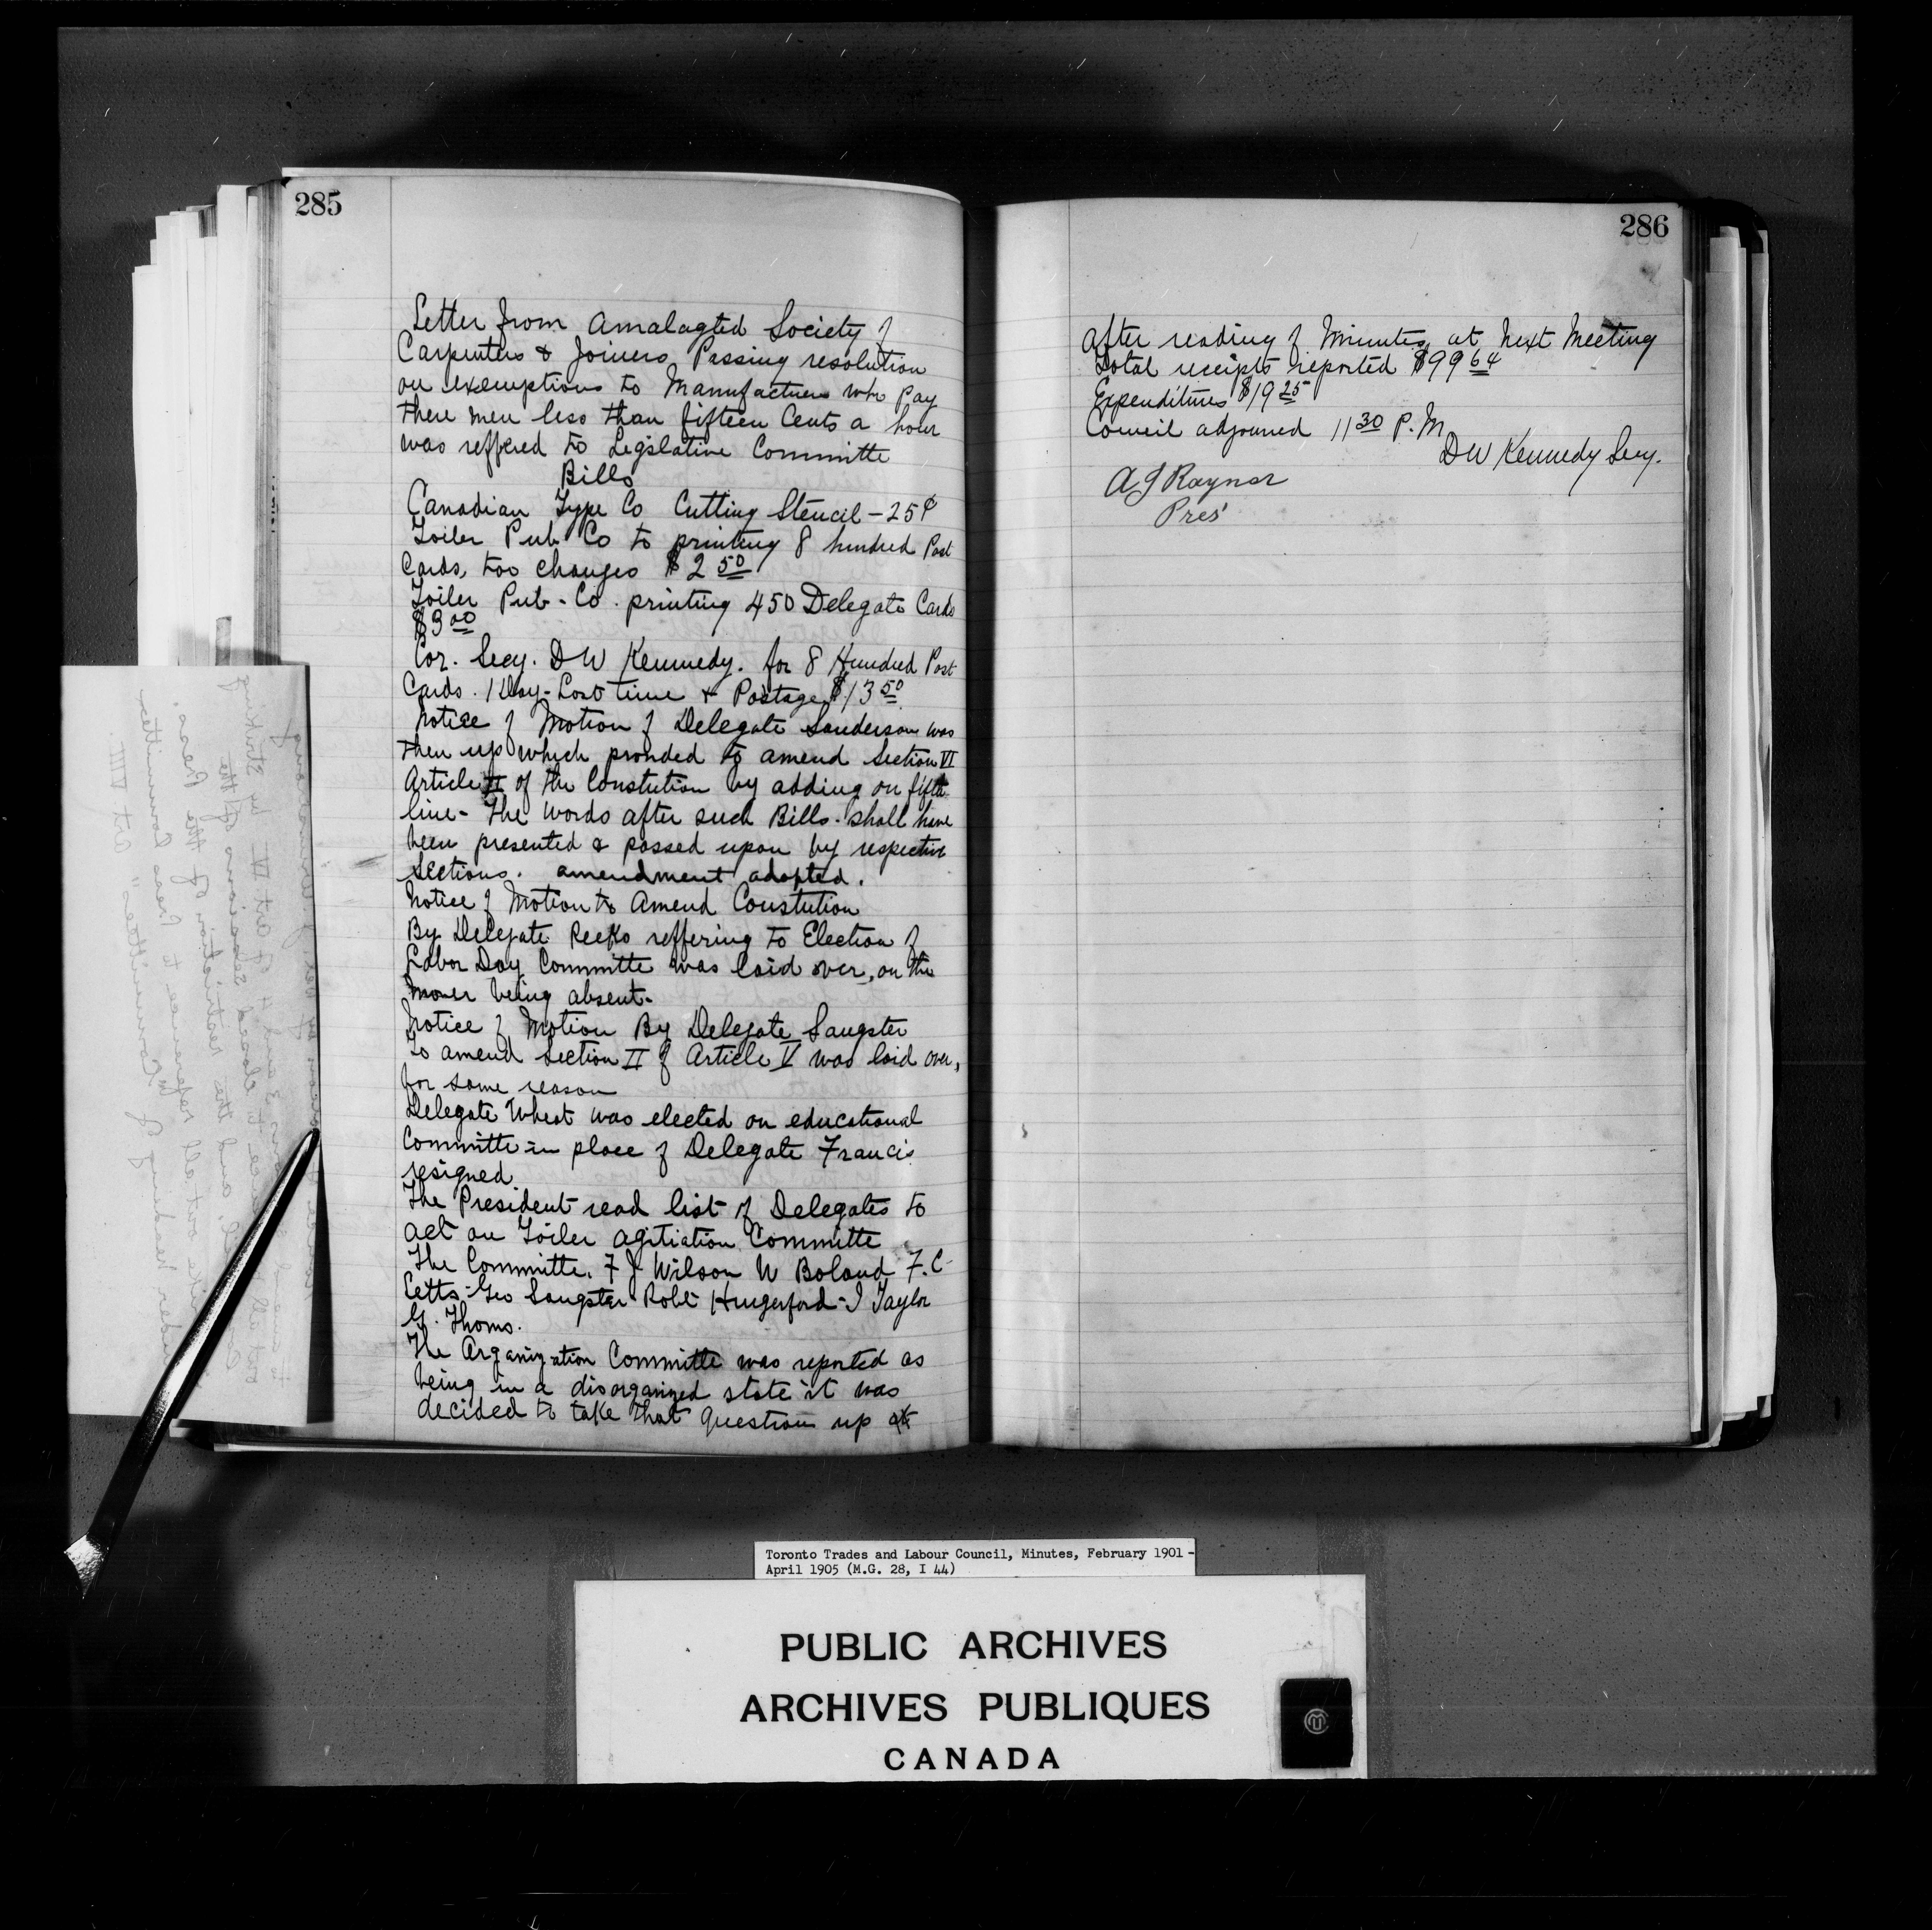 285
Letter from Amalagted Society of
Carpenters & Joiners, Passing resolution
on exemptions to Manufactuers who pay
there men less than fifteen Cents a hour
was reffered to Legislative Committe
Bills
Canadian Type Co Cutting Stencil - 25¢
Toiler Pub Co to printing 8 hundred Post
Cards, too changes $2 50
Toiler Pub - Co. printing 450 Delegate Cards
$3 00
Cor. Secy. D W Kennedy. for 8 Hundred Post
Cards. 1 Day - Lost time & Postage $13 50
Notice of Motion of Delegate Sanderson was
then up which provided to amend Section VI
Article II of the Constution by adding on fifth
line - the words after such Bills - shall have
been presented & passed upon by respective
sections. amendment adopted.
Notice of Motion to Amend Constution
By Delegate reffering to Election of
Labor Day Committe was laid over, on the
mover being absent -
Notice of Motion By Delegate Sangster
To amend Section II of Article V was laid over,
for some reason
Delegate Wheat was elected on educational
Committe in place of Delegate Francis
resigned.
The President read list of Delegates to
act on Toiler agitiation Committe
The Committe. F J Wilson W Boland F. C
Cetts - Geo Sangster Robt Hungerford - J Taylor
G. Thoms.
The Arganization Committe was reported as
being in a disorganized state it was
decided to take that question up at
286
After reading of Minutes at Next Meeting
Total receipts reported $99 64
Expenditures $19 25
Council adjourned 11 30 P. M
D W Kennedy Secy.
A J Raynor
Pres'
Toronto Trades and Labour Council, Minutes, February 1901 -
April 1905 (M.G. 28, I 44)
PUBLIC ARCHIVES
ARCHIVES PUBLIQUES
CANADA